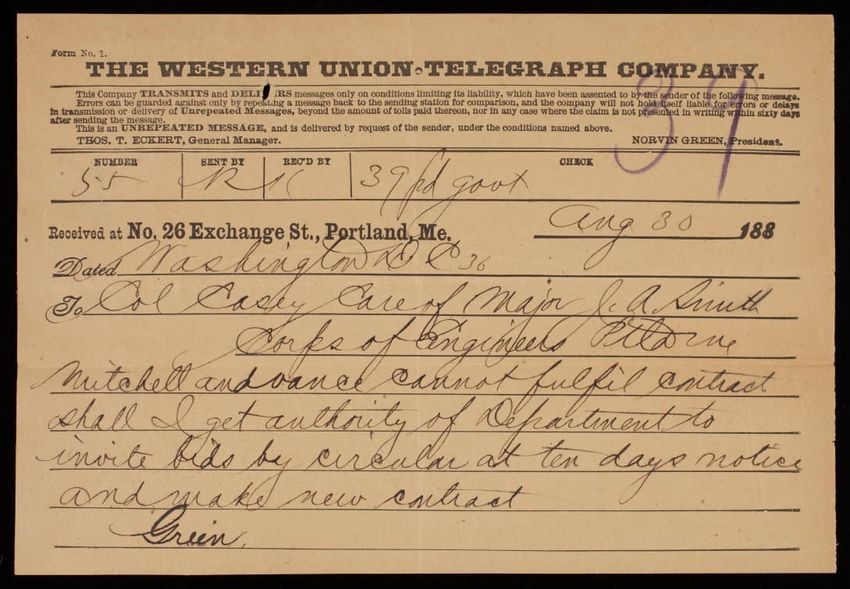 Form No. 1.
THE WESTERN UNION TELEGRAPH COMPANY.
This Company TRANSMITS and DELIVERS messages only on conditions limiting its liability, which have been assented to by the sender of the following message.
Errors can be guarded against only by repeating a message back to the sending station for comparison, and the company will not hold itself liable for errors or delays
in transmission or delivery of Unrepeated Messages, beyond the amount of tolls paid thereon, nor in any case where the claim is not presented in writing within sixty days
after sending the message.
This is an UNREPEATED MESSAGE, and is delivered by request of the sender, under the conditions named above.
THOS. T. ECKERT, General Manager. NORVIN GREEN, President.
37
NUMBER SENT BY REC'D BY CHECK
55 R K 39 pd govt
Received at No. 26 Exchange St., Portland, Me. Aug 30 188
Dated Washington D C 36
To Col Casey Care of Major J. A. Smith
Corps of Engineers Ptld me
Mitchell and vance cannot fulfil contract
shall I get authority of Department to
invite bids by circular at ten days notice
and make new contract
Green.